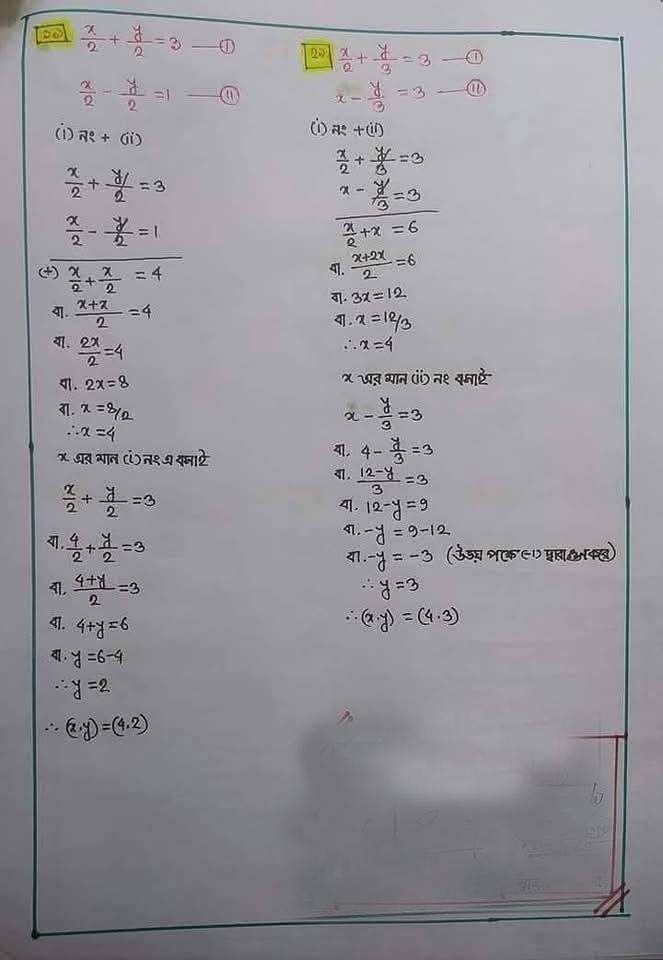 ২০ x/2 + y/2 = 3 —— (I)
x/2 - y/2 = 1 —— (II)
(i) নং + (ii)
x/2 + y/2 = 3
x/2 - y/2 = 1
(+) x/2 + x/2 = 4
বা. x+x/2 = 4
বা. 2x/2 = 4
বা. 2x = 8
বা. x = 8/2
∴ x = 4
x এর মান (i) নং এ বসাই
x/2 + y/2 = 3
বা. 4/2 + y/2 = 3
বা. 4+y/2 = 3
বা. 4+y = 6
বা. y = 6-4
∴ y = 2
∴ (x.y) = (4.2)
x/2 + y/3 = 3 —— (I)
x - y/3 = 3 —— (II)
(i) নং + (ii)
x/2 + y/3 = 3
x - y/3 = 3
x/2 + x = 6
বা. x+2x/2 = 6
বা. 3x = 12
বা. x = 12/3
∴ x = 4
x এর মান (ii) নং বসাই
x - y/3 = 3
বা. 4 - y/3 = 3
বা. 12-y/3 = 3
বা. 12-y = 9
বা. -y = 9-12
বা. -y = -3 (উভয় পক্ষে (-1) দ্বারা গুন করে)
∴ y = 3
∴ (x.y) = (4.3)